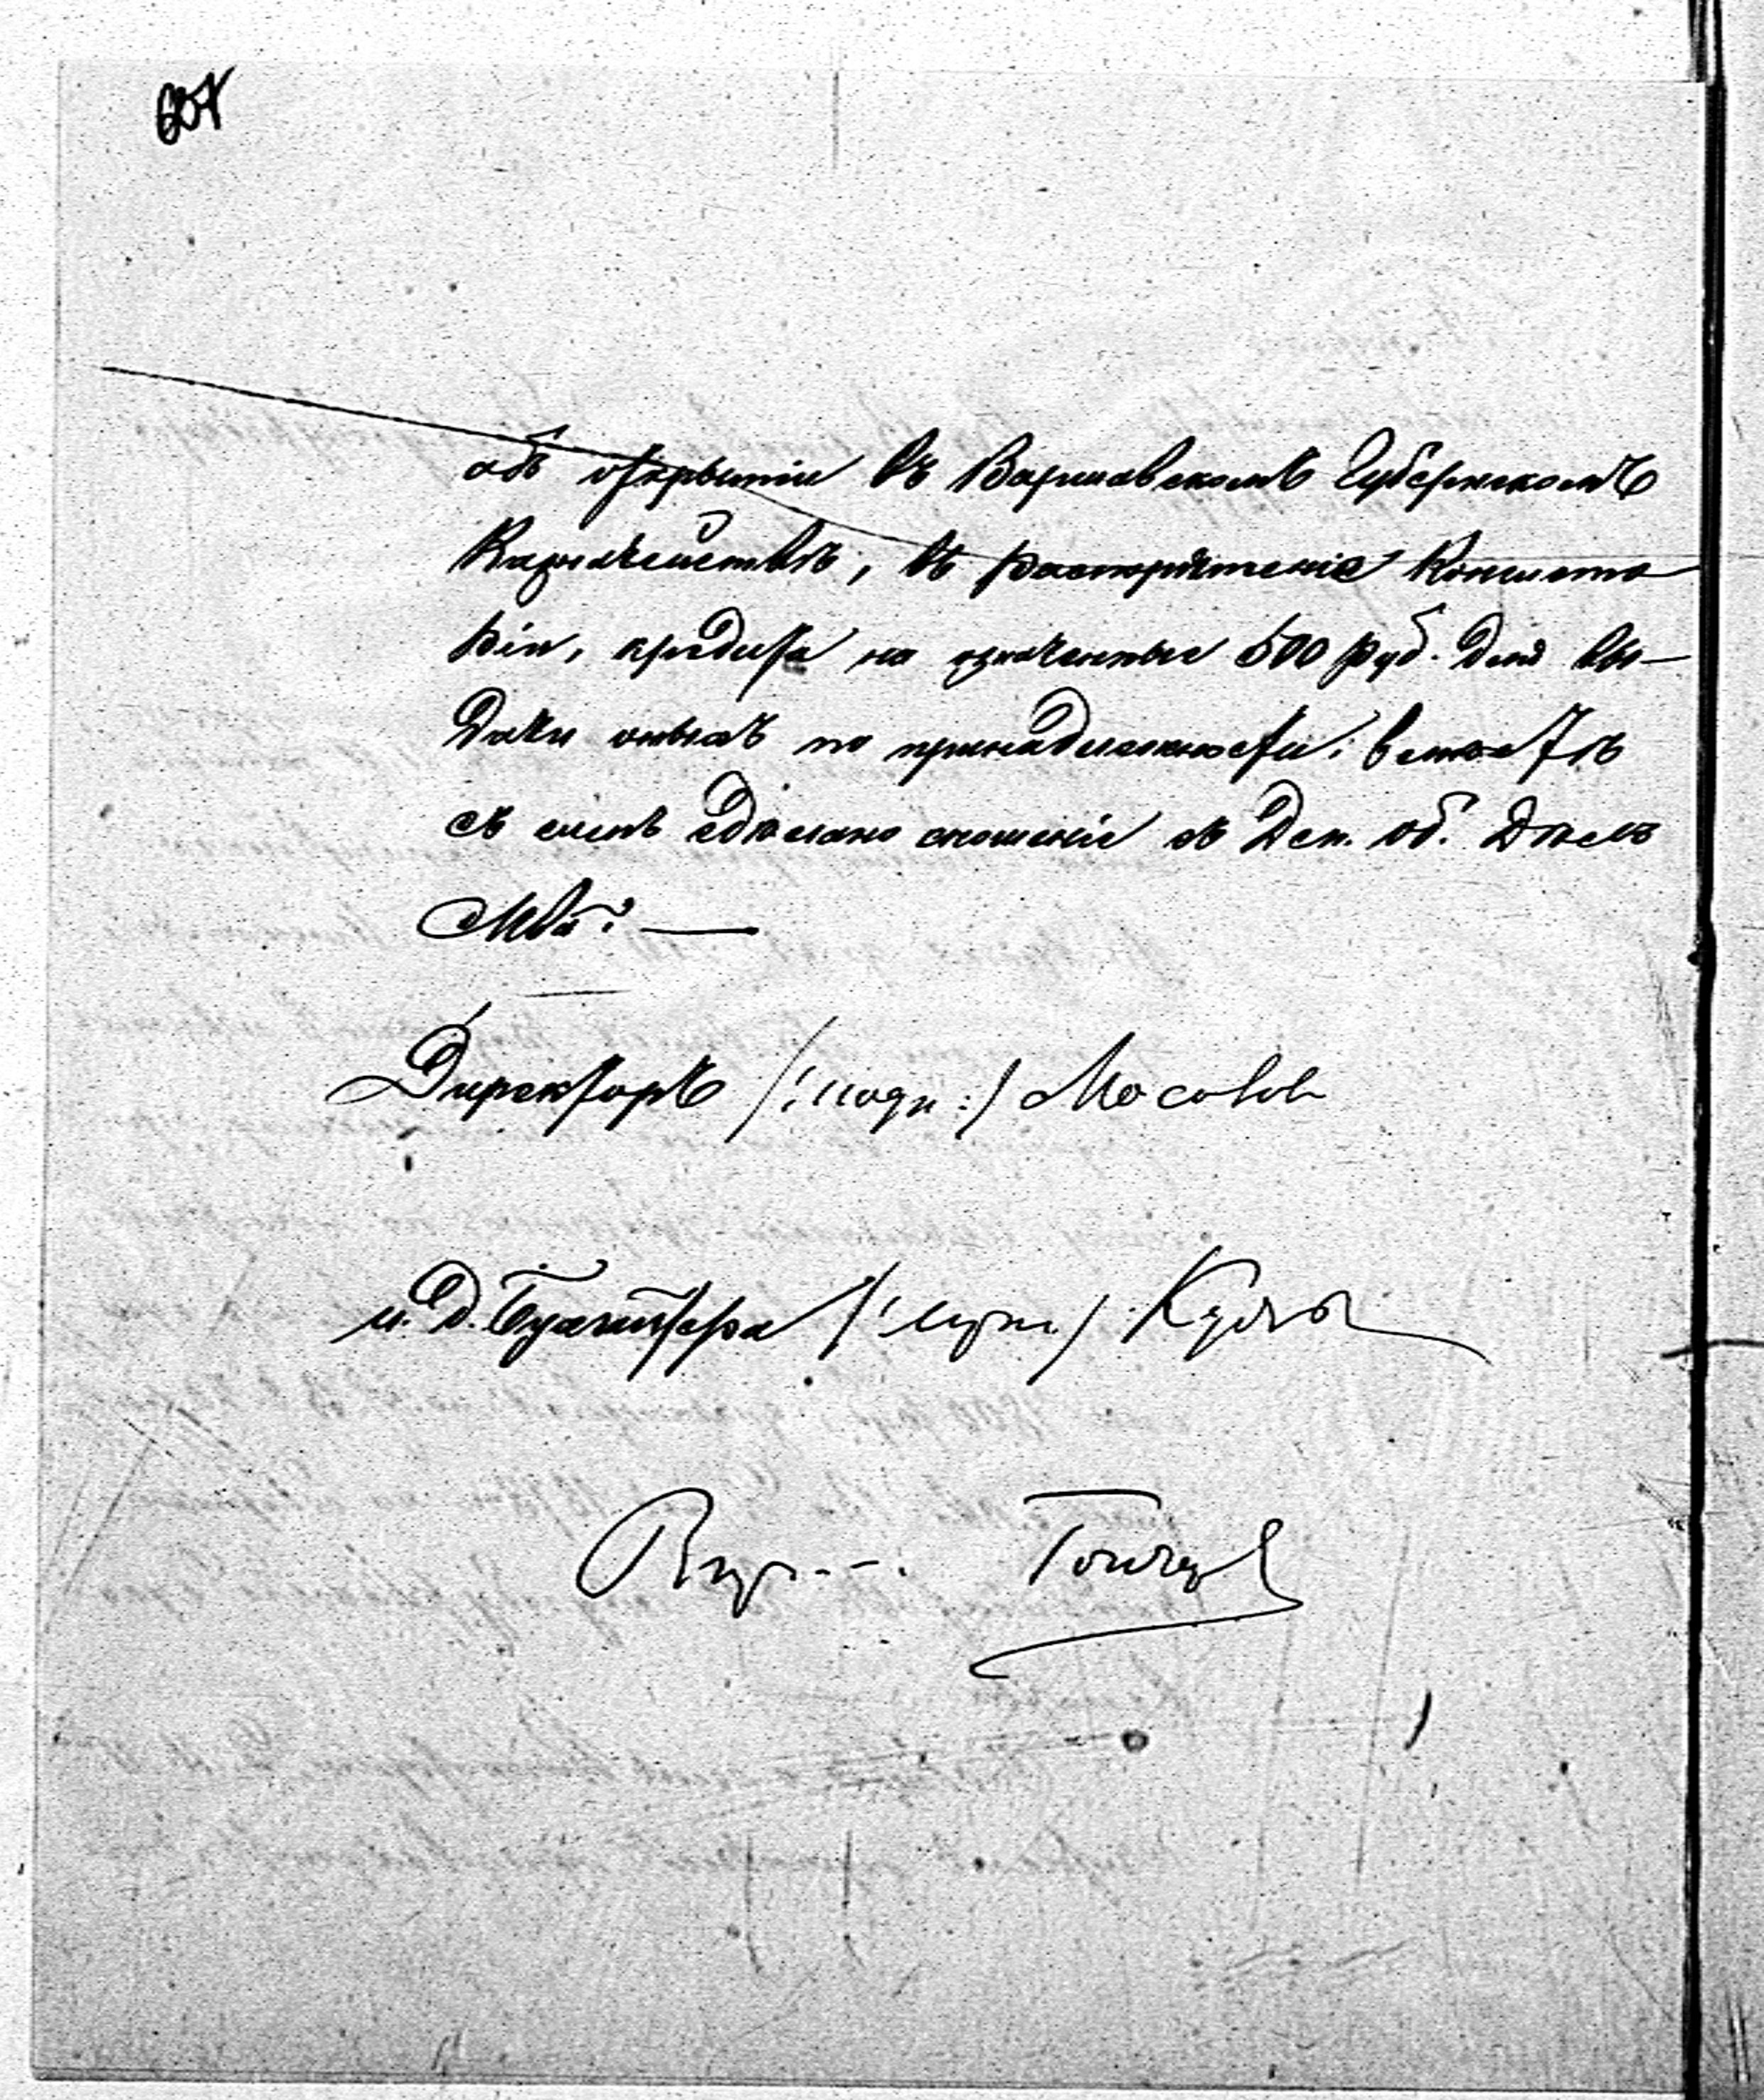 объ открытіи въ Варшавскомъ Губернскомъ
Казначействѣ, въ распоряженіе Консисто
ріи, кредита на означенные 500 руб. для вы-
дачи оныхъ по принадлежности, вмѣстѣ
съ симъ сдѣлано сношеніе съ Деп. Об. Дѣлъ
М-ва. —
Директоръ /:подп:/ Мосолов
и. д. Бухгалтера /: